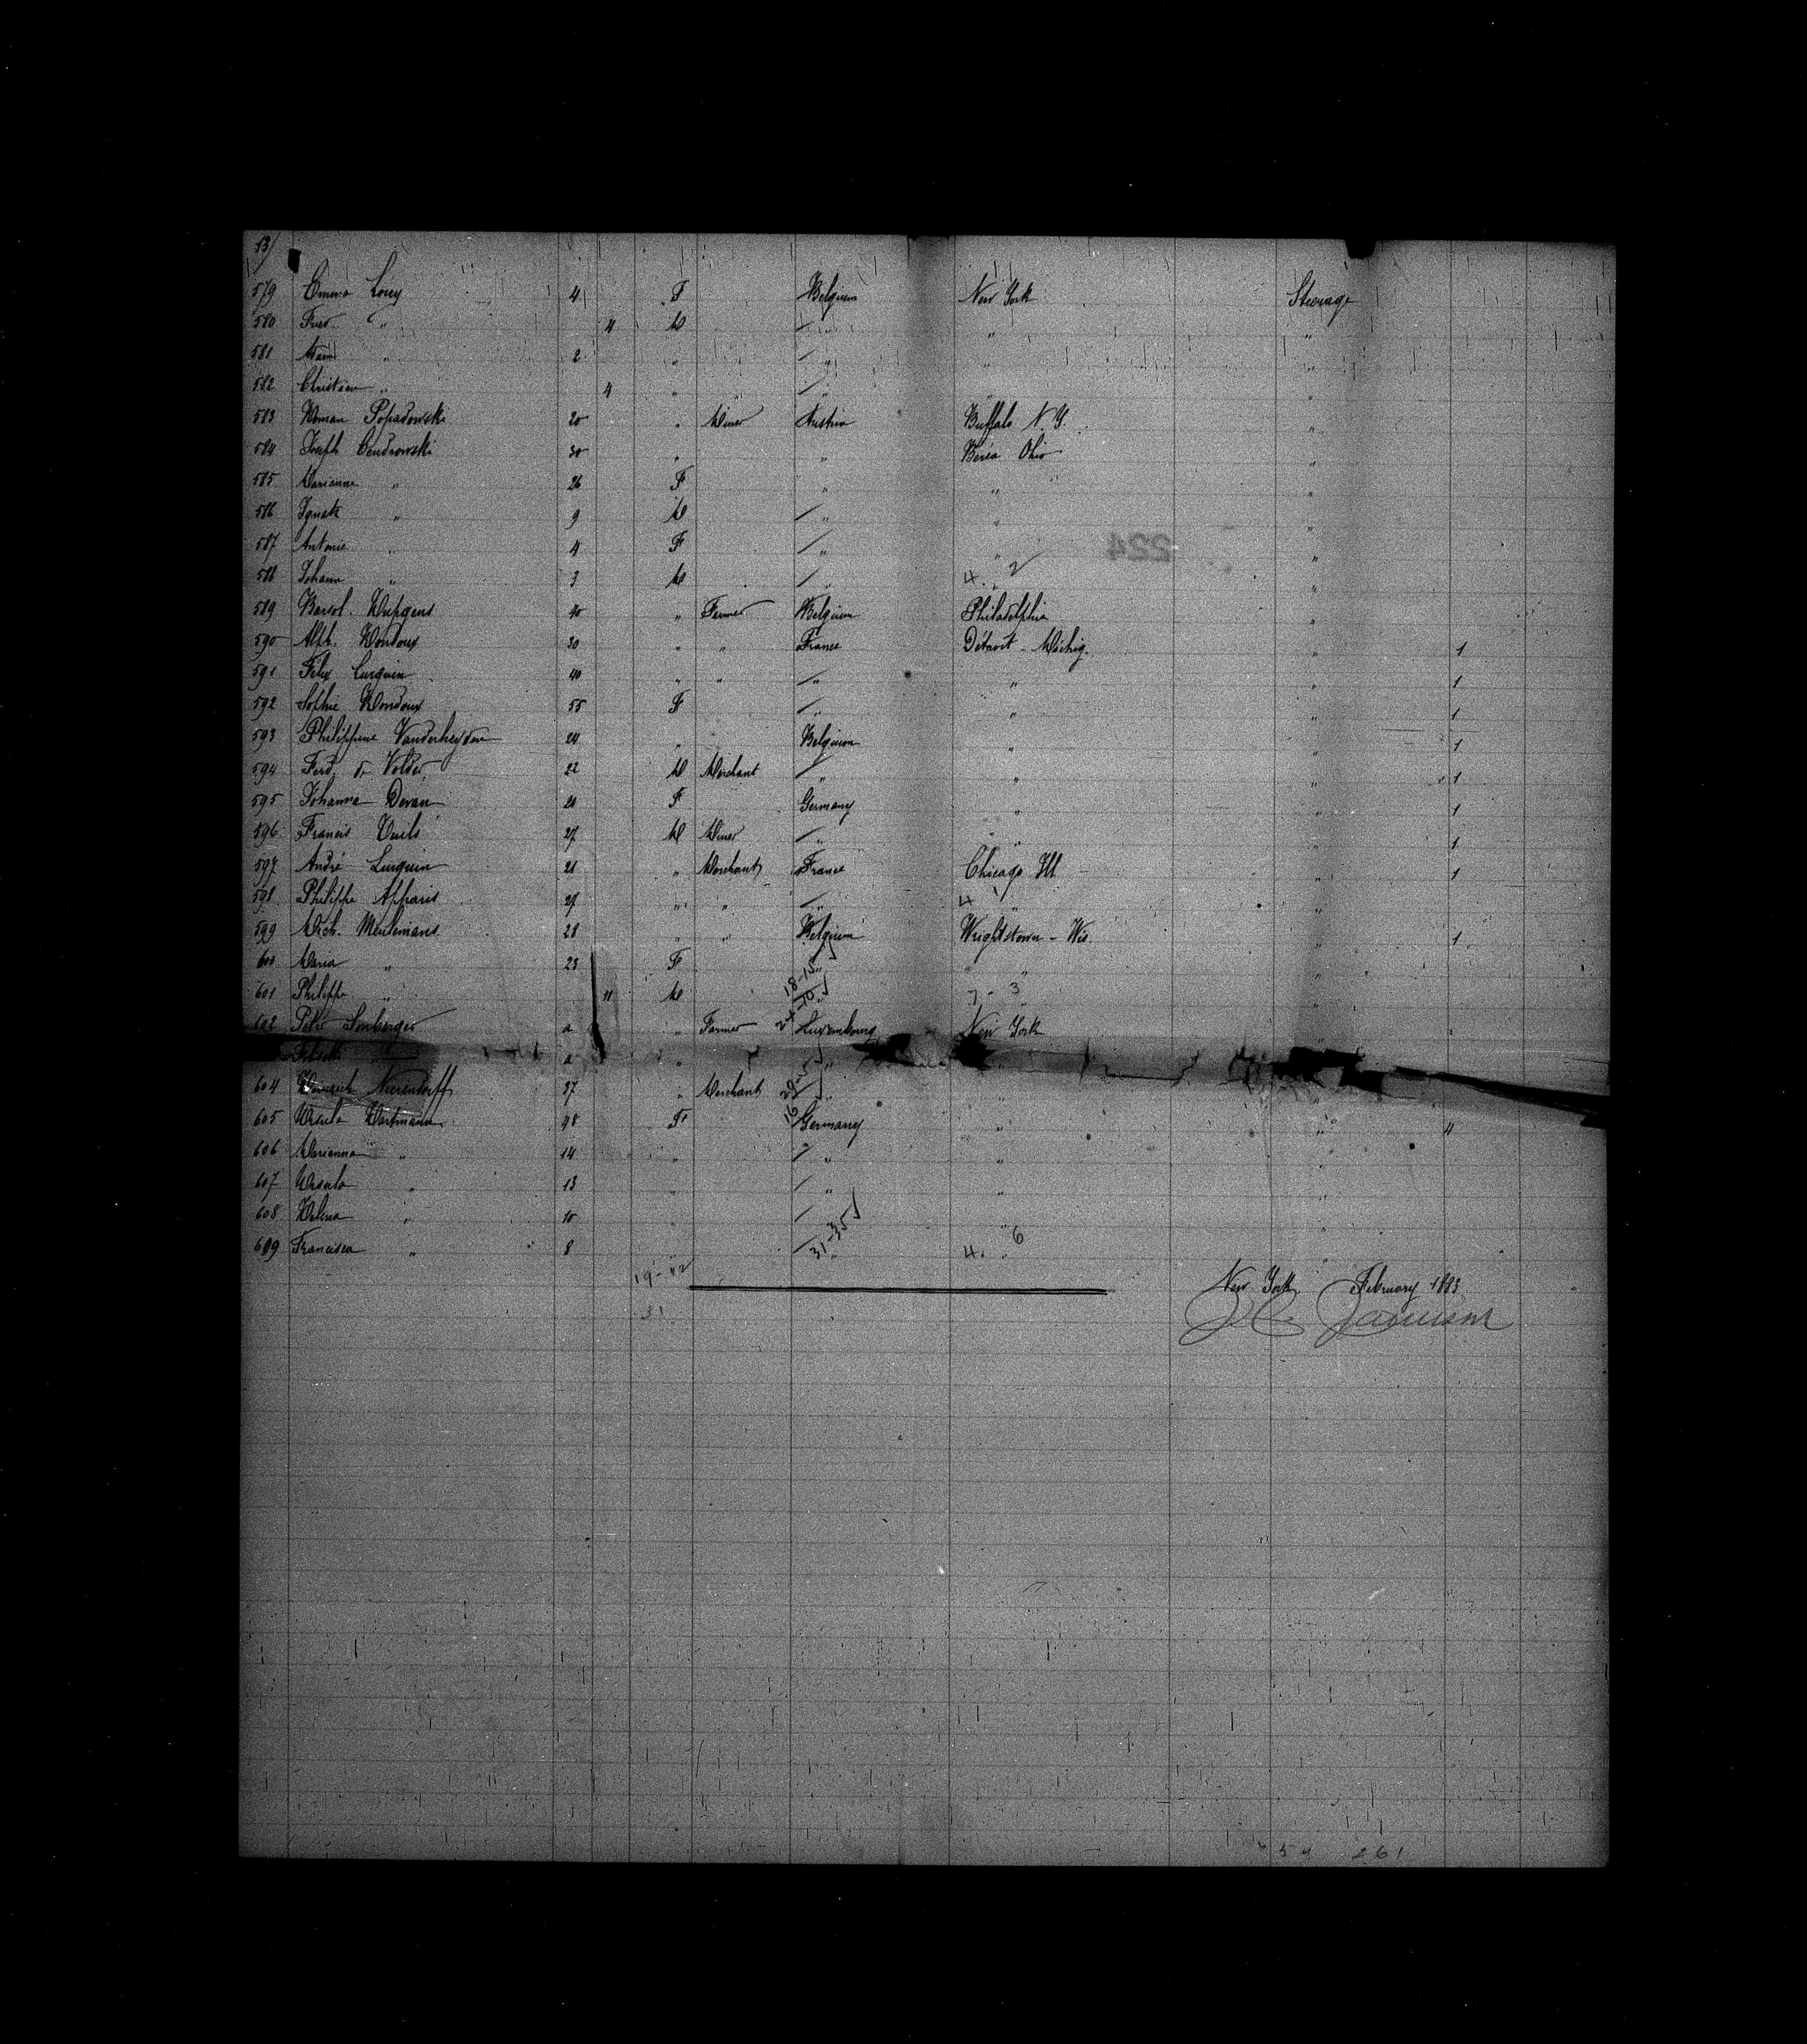 13/
579 Emma Lorey 4 F Belgium New York Steerage
580 Fred " 4 M / " " "
581 " 2 " / " " "
582 Christian " 4 " / " " "
583 Roman Popadowski 20 " Miner Austria Buffalo N.Y. "
584 Joseph Cendrowski 30 " " Berea Ohio "
585 Marianne " 26 F " " "
586 Ignatz " 9 M / " " "
587 Antonie " 4 F / " " "
588 Johann " 3 M / " 4. 2 "
589 Barvol. 40 " Farmer Belgium Philadelphia "
590 Alph. 30 " " France Detroit - Michig. " 1
591 Felix Lurquin 40 " " / " " " 1
592 Sophie 55 F / " " " 1
593 Philippine Vanderheyden 24 " Belgium " " 1
594 Ferd. de Volder 22 M Merchant / " " " 1
595 Johanna Devan 21 F Germany " " 1
596 Francis 27 M Miner / " " " 1
597 André Lurquin 21 " Merchant France Chicago Ill " 1
598 Philippe Apparis 29 " " / " 4 1 " "
599 Mich. Meulemans 28 " " Belgium Wrightstown - Wis. " 1
600 Maria " 23 F " 18-15 " " "
601 Philippe " 11 M " 24-10 7 - 3 "
602 Peter Lomberger a " Farmer Luxembourg New York "
a " " "
604 Nierendorff 37 " Merchant / " " "
605 Ursula Hartmann 48 F Germany " " 4
606 Marianna " 14 " / " " "
607 Ursula " 13 " / " " "
608 Helena " 10 " / " " "
609 Francisca " 8 " / " 31-35 4. 6 "
19-42
31
New York February 1883
J C Jamison
224
54 261